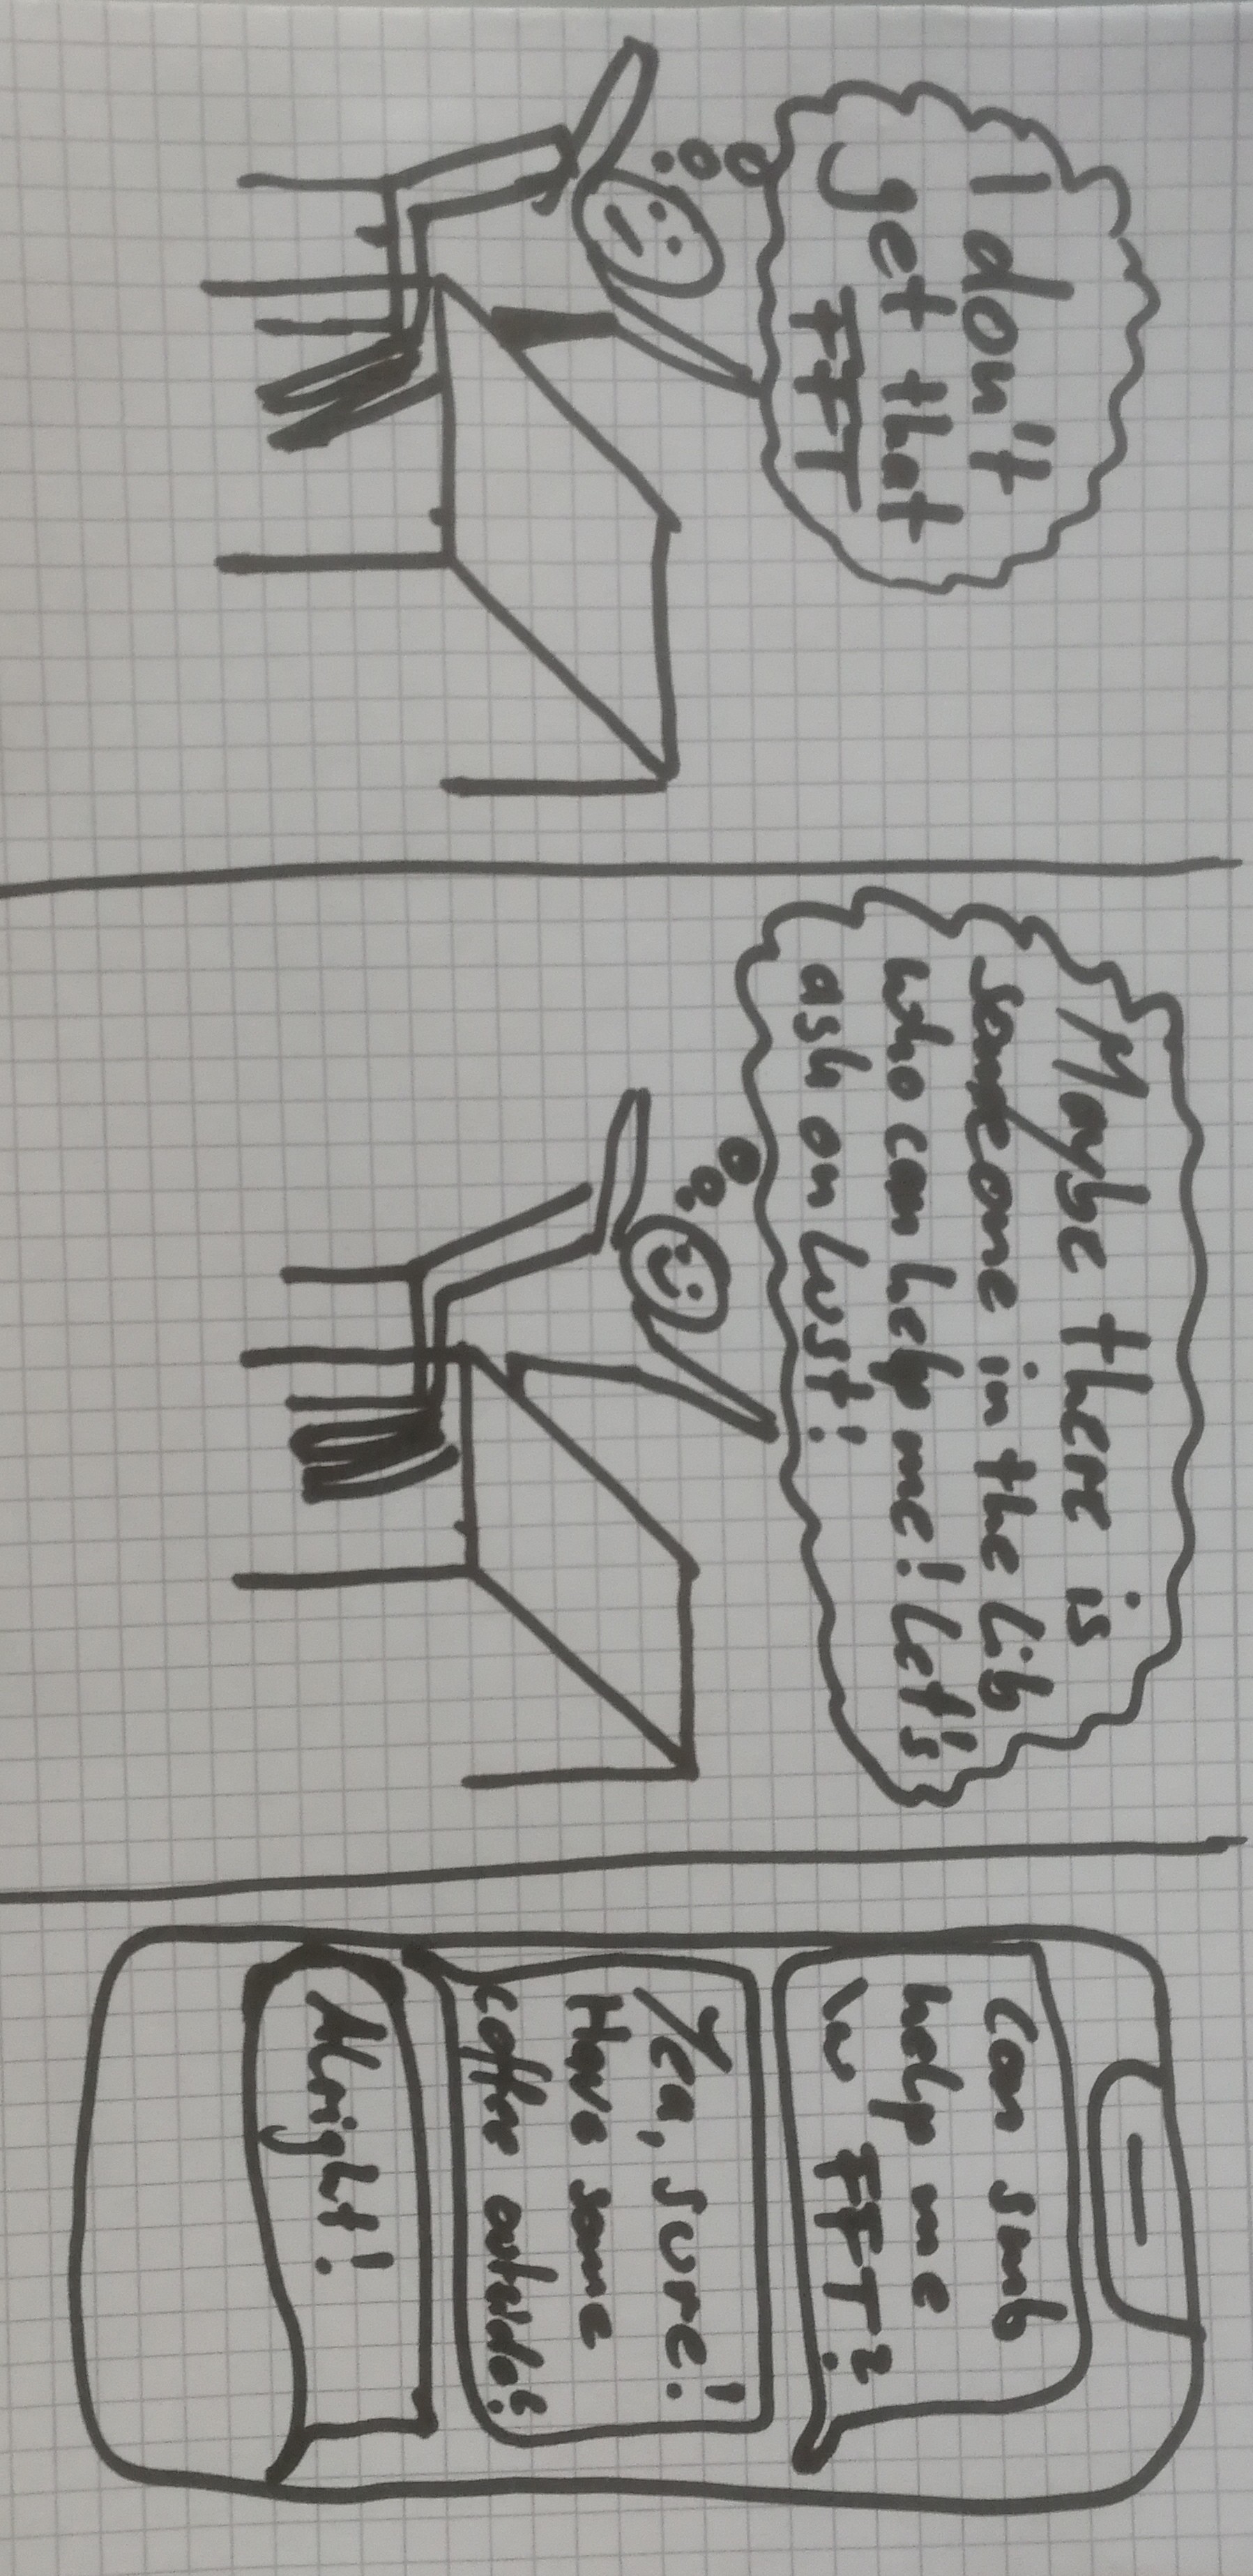 I don't
get that
FFT
Maybe there is
someone in the Lib
who can help me! Let's
ask on Lust!
Can smb
help me
w FFT?
Yea, sure!
Have some
coffee outside?
Alright!